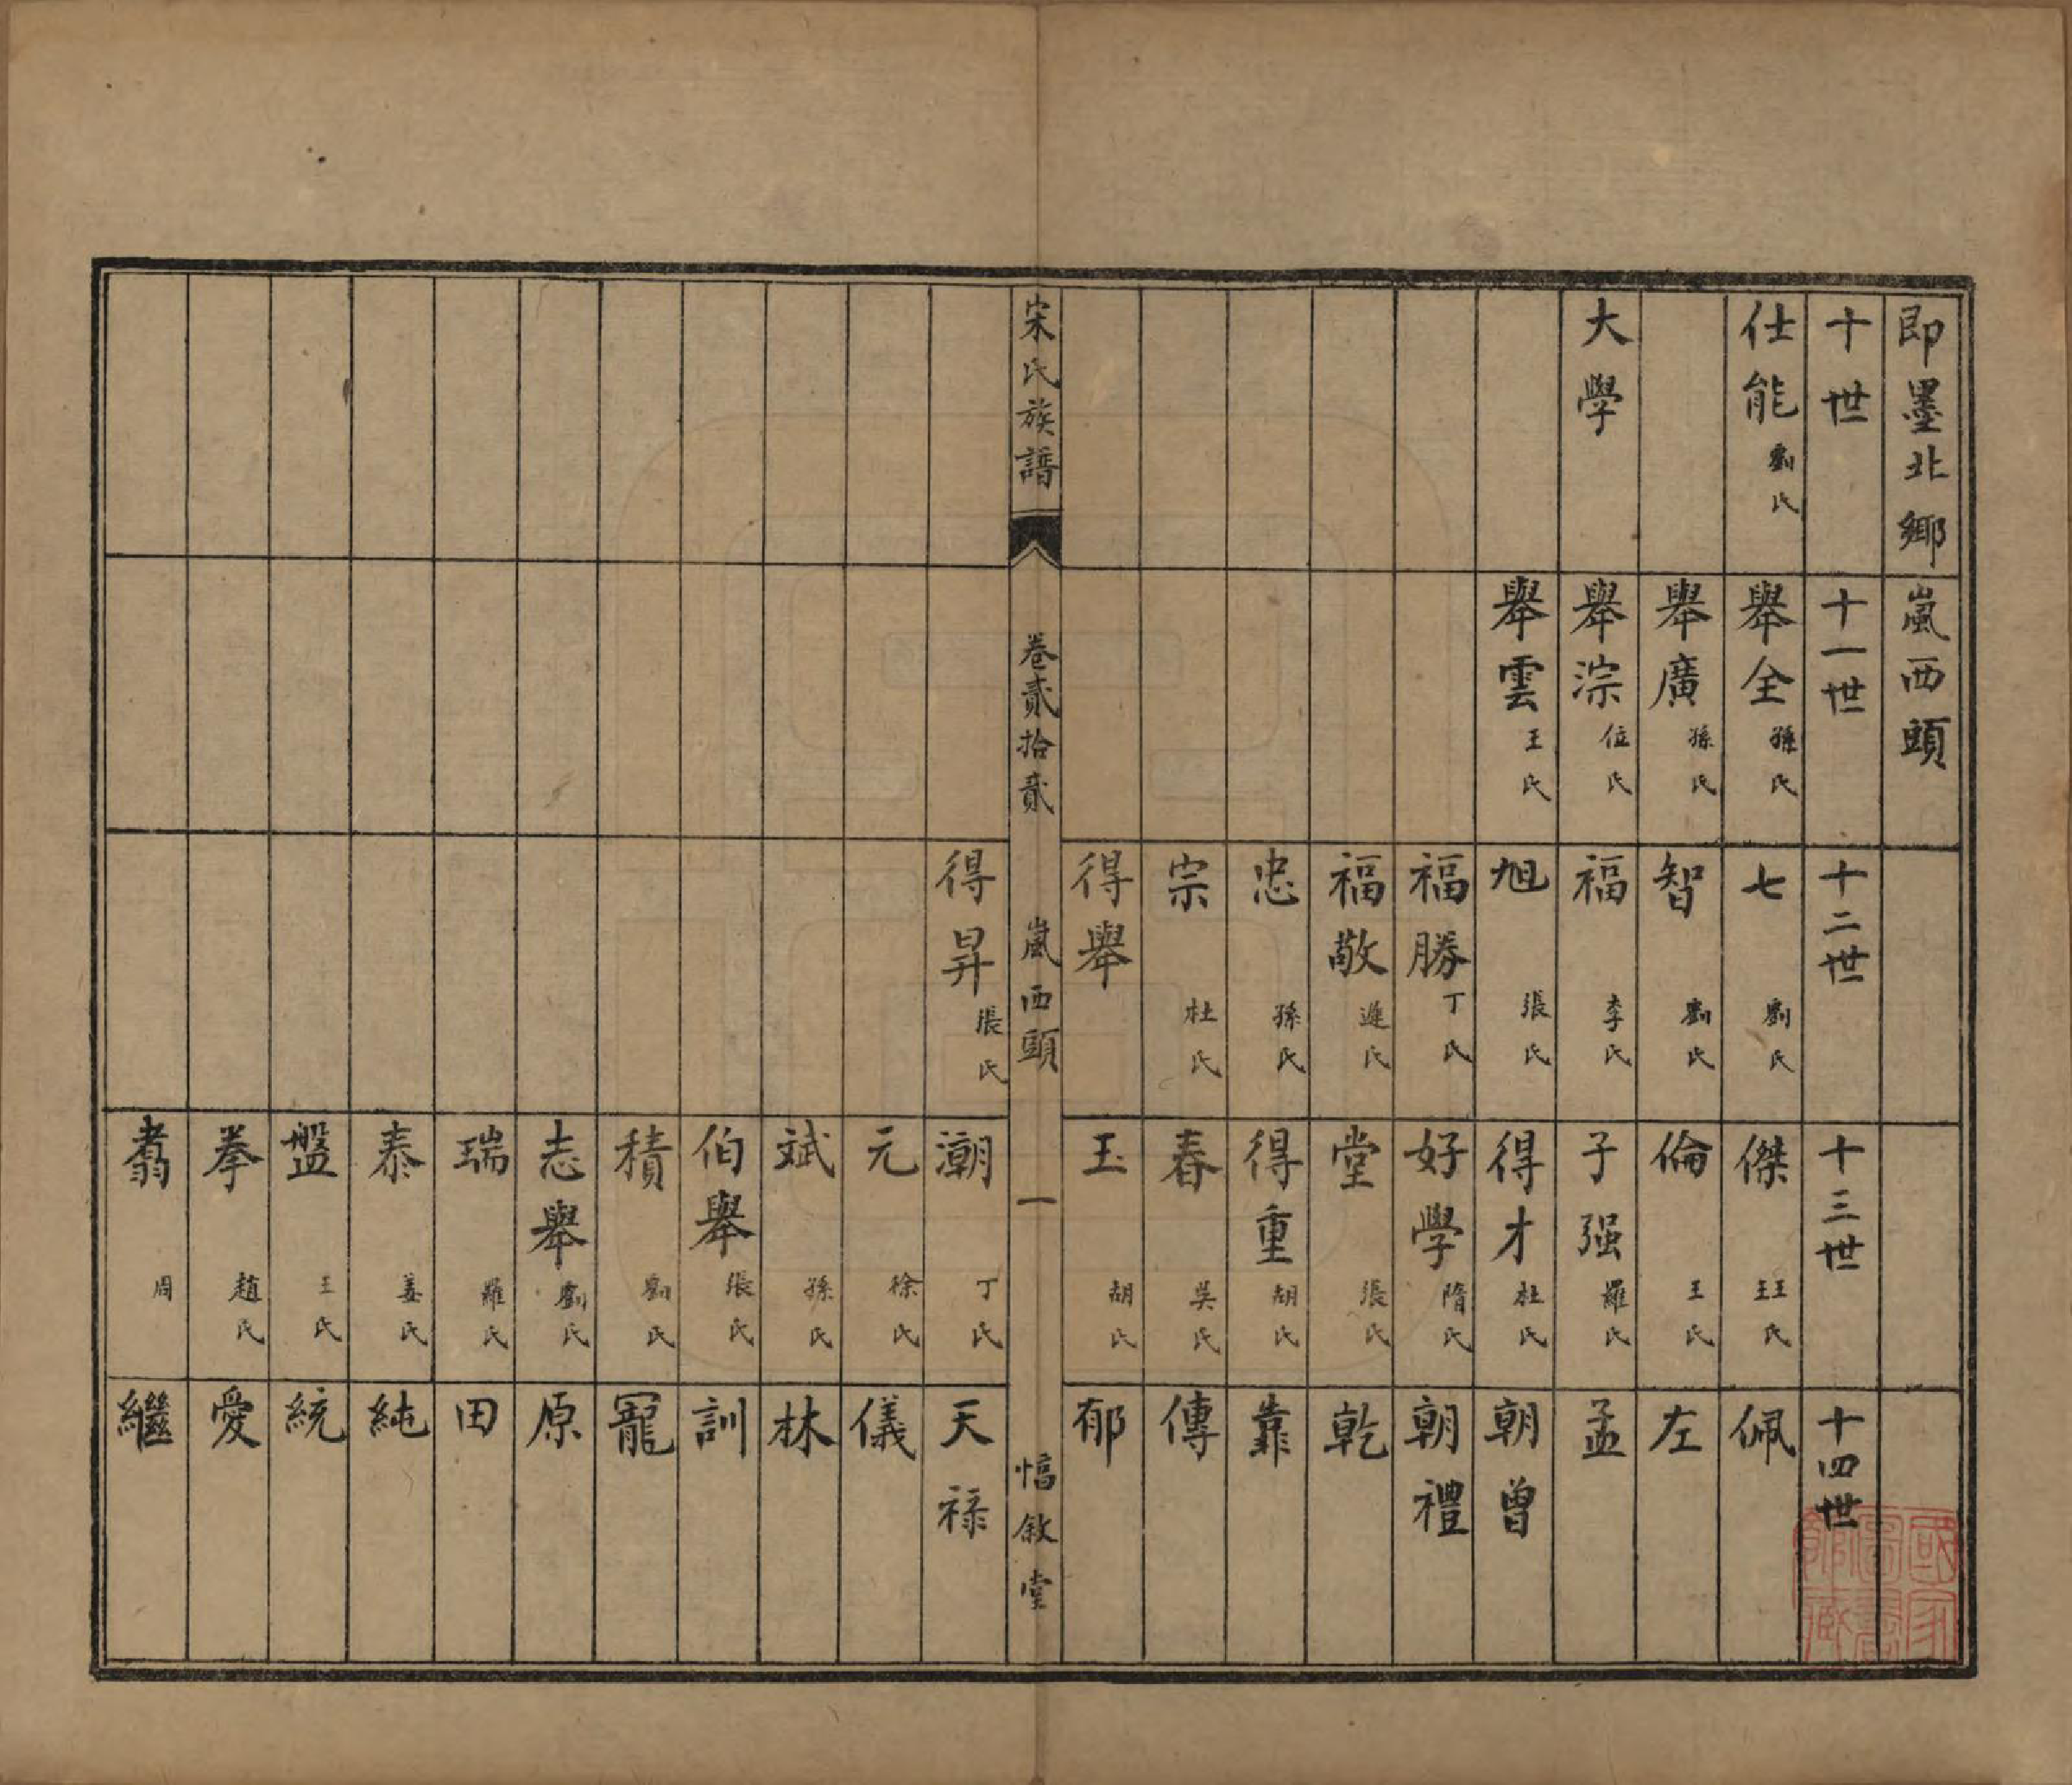 即墨北鄉嵐西頭
十世 十一世 十二世 十三世 十四世
仕能 劉氏 舉全 孫氏 七 劉氏 傑 王王氏 佩
舉廣 孫氏 智 劉氏 倫 王氏 左
大學 舉淙 位氏 福 李氏 子强 羅氏 孟
舉雲 王氏 旭 張氏 得才 杜氏 朝曾
福勝 丁氏 好學 隋氏 朝禮
福敬 氏 堂 張氏 乾
忠 孫氏 得重 胡氏 靠
宗 杜氏 春 吳氏 傳
得舉 玉 胡氏 郁
宋氏族譜 卷貳拾貳 嵐西頭 一 惇敘堂
得昇 張氏 潮 丁氏 天祿
元 徐氏 儀
斌 孫氏 林
伯舉 張氏 訓
積 劉氏 寵
志舉 劉氏 原
瑞 羅氏 田
泰 姜氏 純
盤 王氏 統
拳 趙氏 愛
翥 周 繼
國家圖書館藏